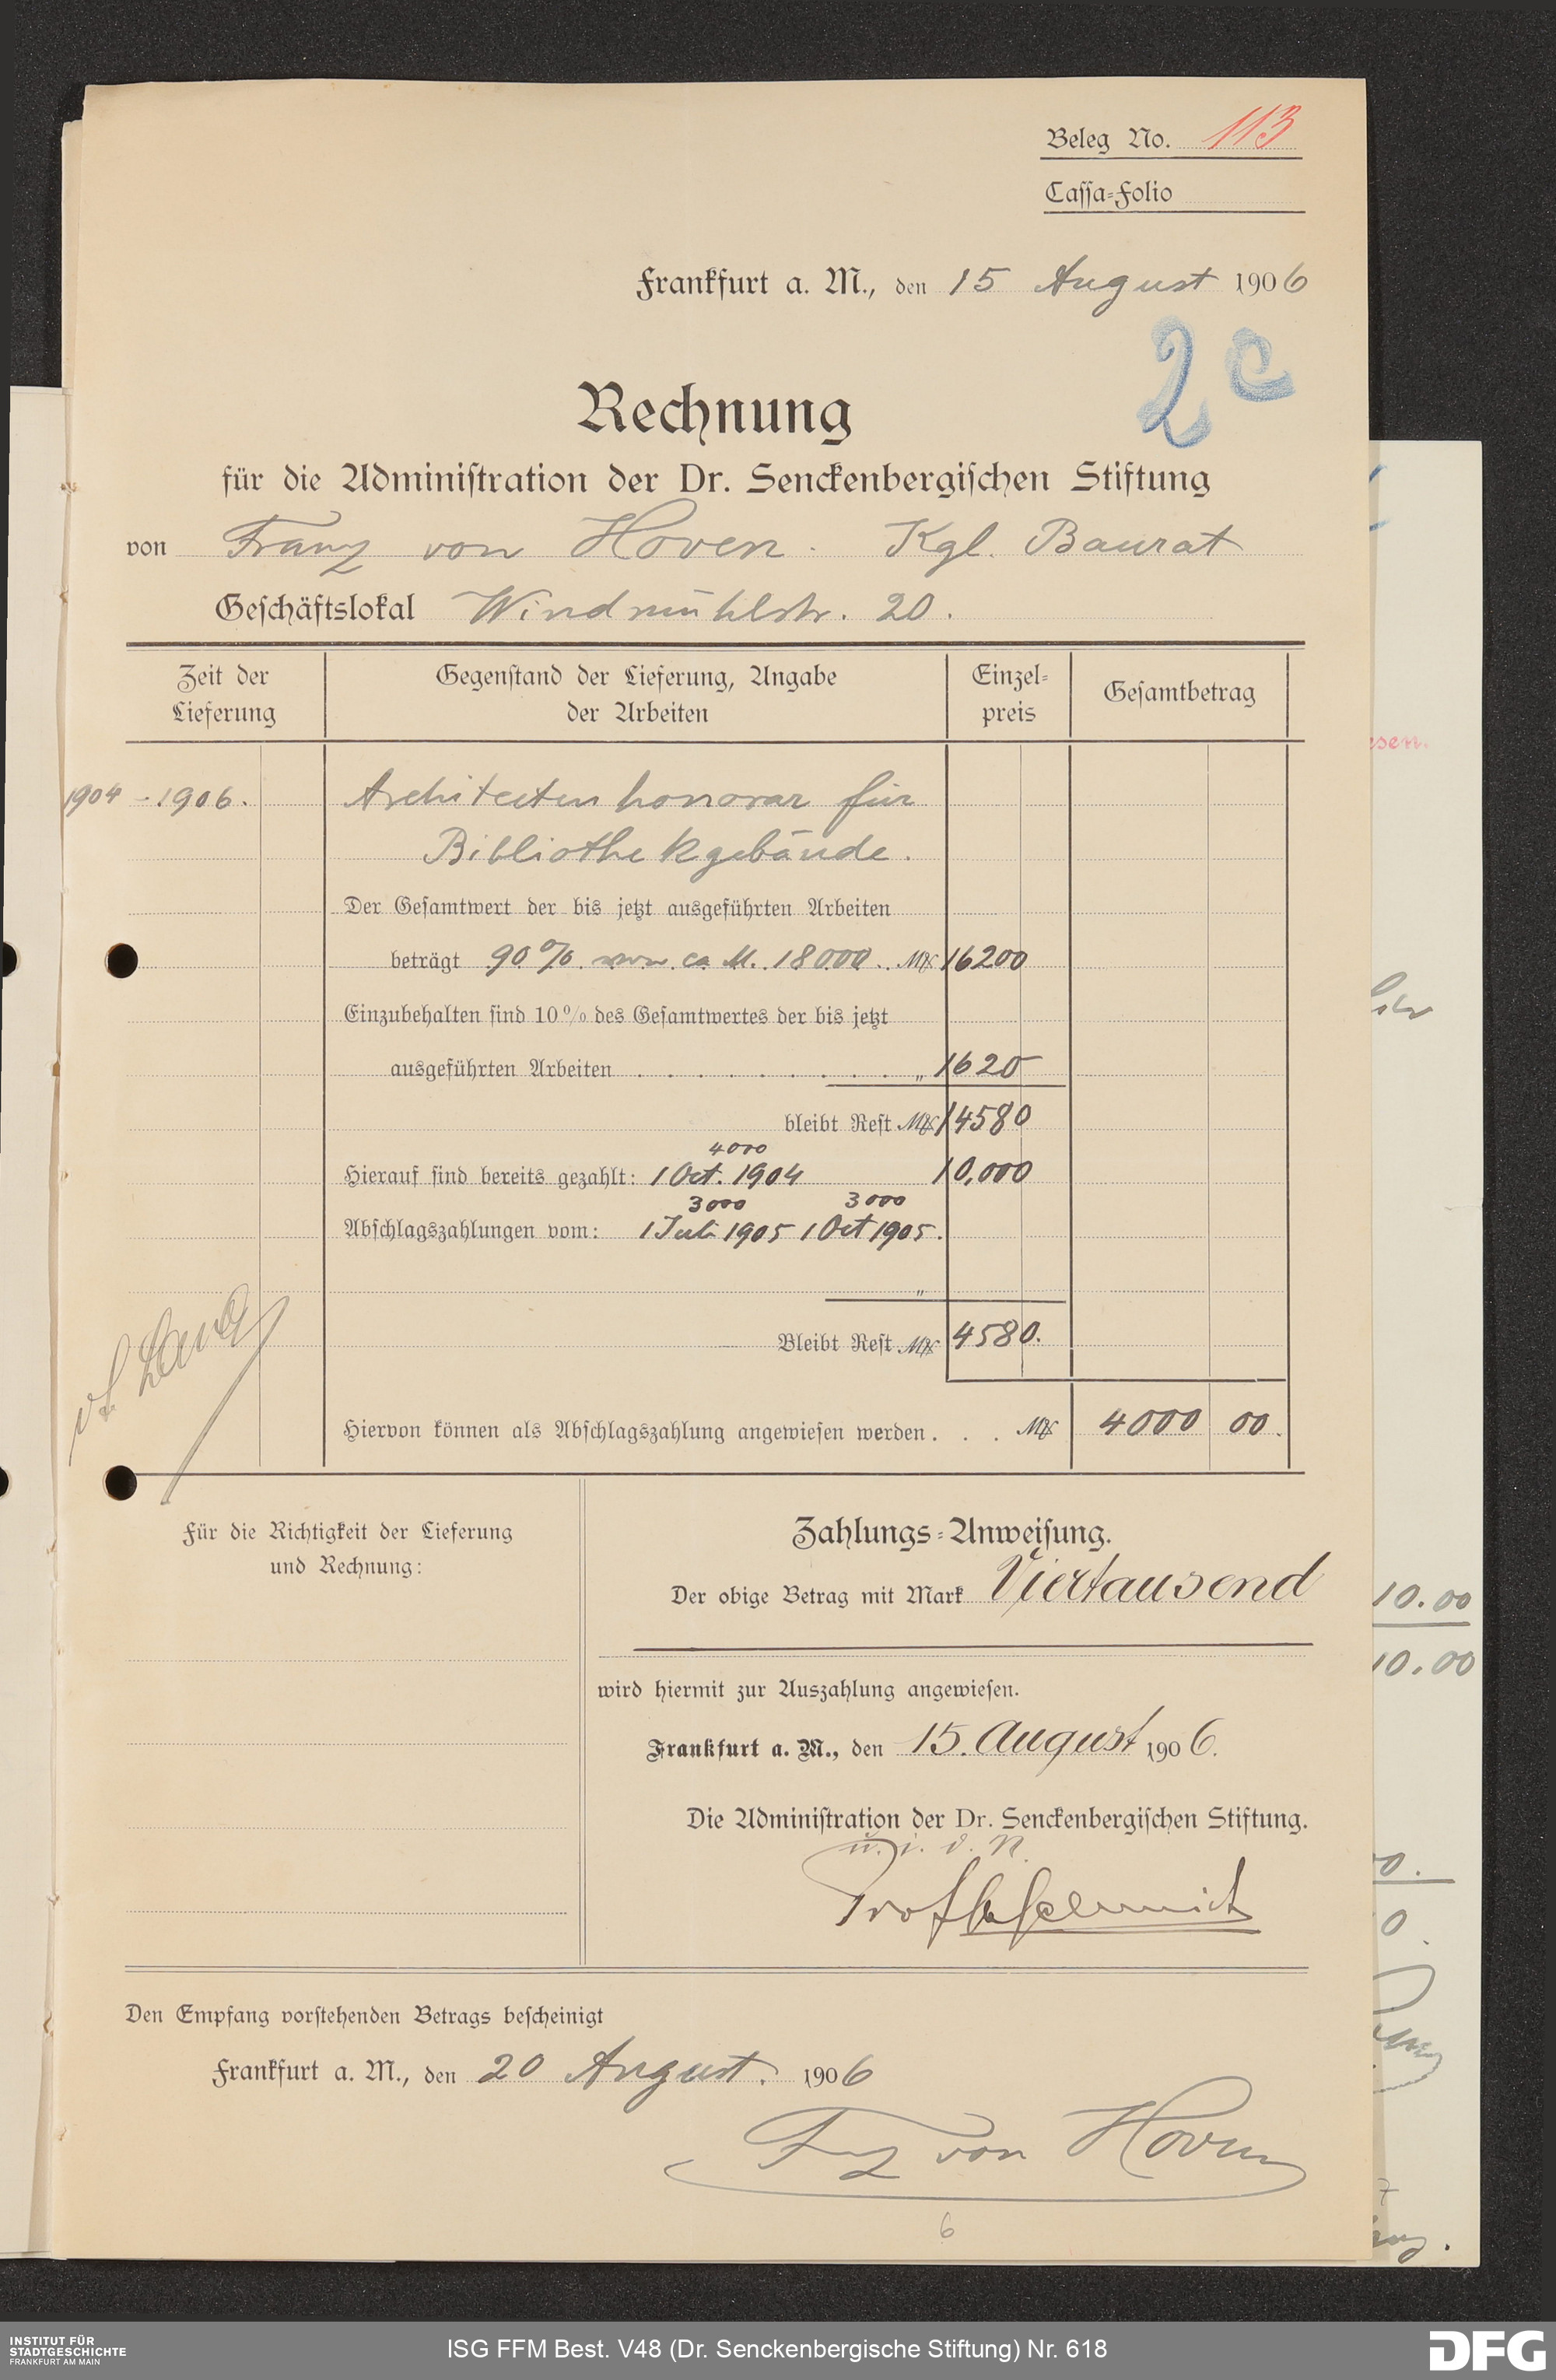 Beleg No. 113
Cassa-Folio
Frankfurt a. M., den 15 August 1906
2 c
Rechnung
für die Administration der Dr. Senckenbergischen Stiftung
von Franz von Hoven. Kgl. Baurat
Geschäftslokal Windmühlstr. 20.
Zeit der Lieferung
Gegenstand der Lieferung, Angabe der Arbeiten
Einzel-preis
Gesamtbetrag
1904 - 1906. Architecten honorar für
Bibliothekgebäude.
Der Gesamtwert der bis jetzt ausgeführten Arbeiten
beträgt 90 % von ca M. 18000. Mk 16200
Einzubehalten sind 10 % des Gesamtwertes der bis jetzt
ausgeführten Arbeiten . . . . . . . . . „ 1620
bleibt Rest Mk 14580
4000
Hierauf sind bereits gezahlt: 1 Oct. 1904 10,000
3000 3000
Abschlagszahlungen vom: 1 Juli 1905 1 Oct 1905.
„
Bleibt Rest Mk 4580.
Hiervon können als Abschlagszahlung angewiesen werden . . . Mk 4000 00.
Für die Richtigkeit der Lieferung
und Rechnung:
Zahlungs-Anweisung.
Der obige Betrag mit Mark Viertausend
wird hiermit zur Auszahlung angewiesen.
Frankfurt a. M., den 15. August 1906.
Die Administration der Dr. Senckenbergischen Stiftung.
Prof
Den Empfang vorstehenden Betrags bescheinigt
Frankfurt a. M., den 20 August. 1906
Frz von Hoven
6
10.00
10.00
INSTITUT FÜR
STADTGESCHICHTE
FRANKFURT AM MAIN
ISG FFM Best. V48 (Dr. Senckenbergische Stiftung) Nr. 618
DFG